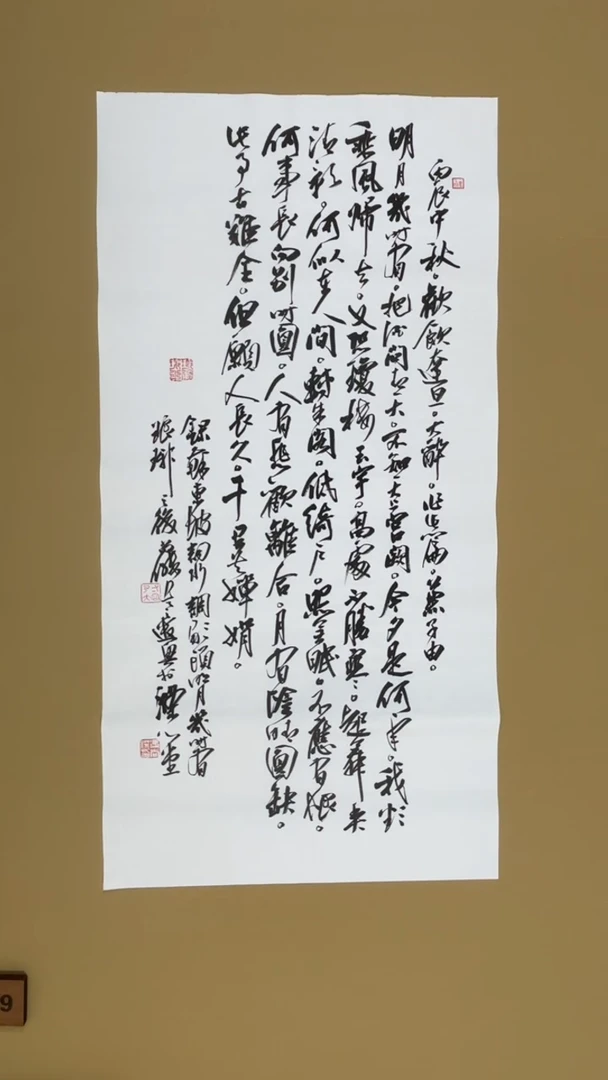 丙辰中秋。歡飲達旦。大醉。作此篇。兼子由。
明月幾時有。把酒問青天。不知天上宮闕。今夕是何年。我欲
乘風歸去。又恐瓊樓玉宇。高處不勝寒。起舞弄
清影。何似在人間。轉朱閣。低綺户。照無眠。不應有恨。
何事長向別時圓。人有悲歡離合。月有陰晴圓缺。
此事古難全。但願人長久。千里共嬋娟。
錄蘇東坡詞水調歌頭明月幾時有
琅琊
9